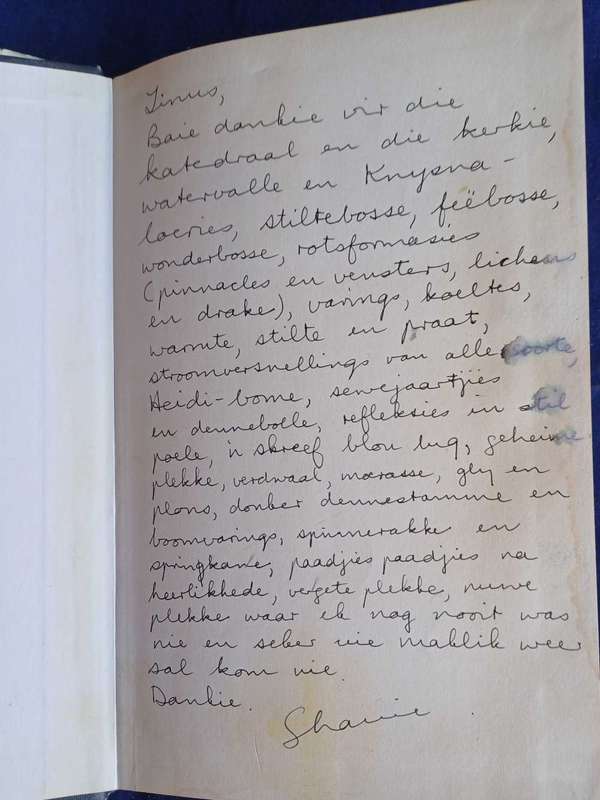 Tinus,
Baie dankie vir die
katedraal en die kerkie,
watervalle en Knysna-
loeries, stiltebosse, feëbosse,
wonderbosse, rotsformasies
(pinnacles en vensters, lichens
en drake), varings, koeltes,
warmte, stilte en praat,
stroomversnellings van alle soorte,
Heidi-bome, sewejaartjies
en dennebolle, refleksies in stil
poele, 'n skreef blou lug, geheime
plekke, verdwaal, moerasse, gly en
plons, donker dennestamme en
boomvarings, spinnerakke en
springkane, paadjies paadjies na
heerlikhede, vergete plekke, nuwe
plekke waar ek nog nooit was
nie en seker nie maklik weer
sal kom nie.
Dankie.